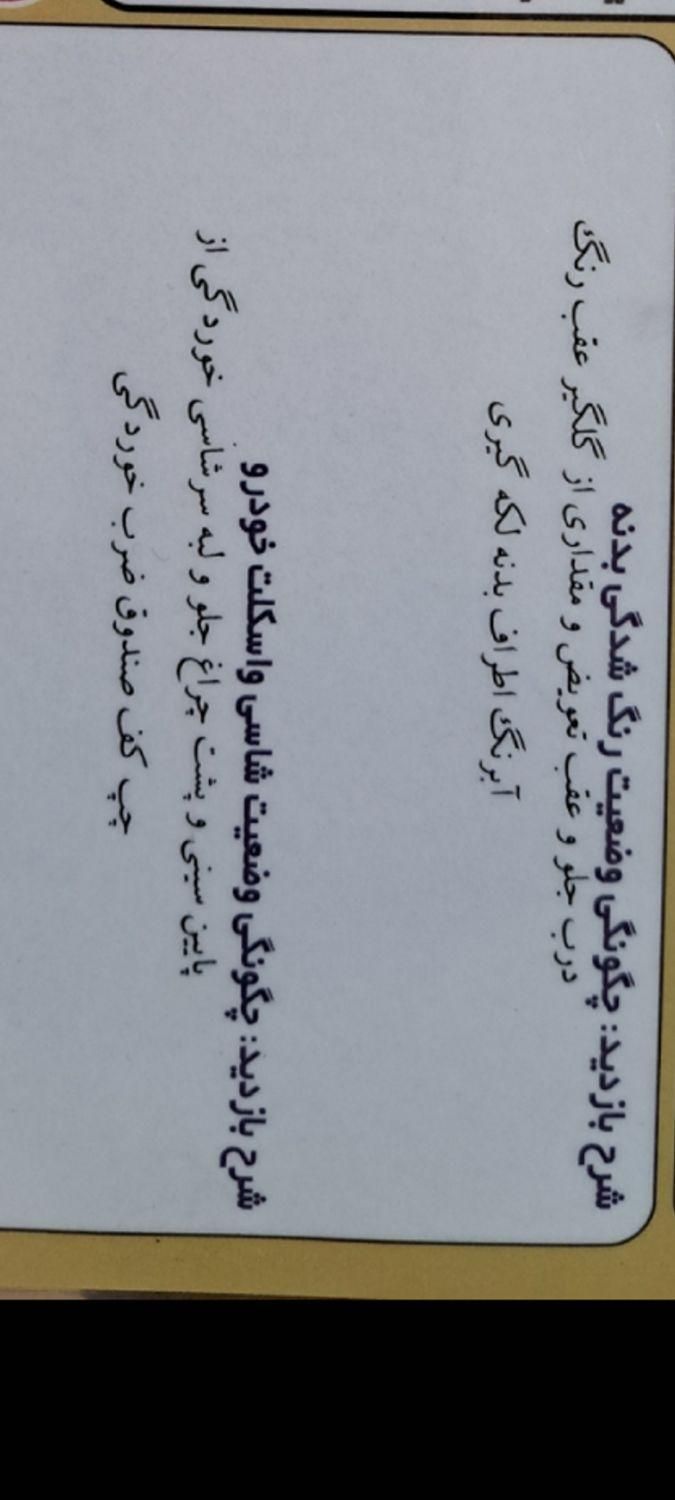 شرح بازدید: چگونگی وضعیت رنگ شدگی بدنه
درب جلو و عقب تعویض و مقداری از گلگیر عقب رنگ
آبرنگ اطراف بدنه لکه گیری
شرح بازدید: چگونگی وضعیت شاسی واسکلت خودرو
پایین سینی و پشت چراغ جلو و لبه سر شاسی خوردگی از
چپ کف صندوق ضرب خوردگی